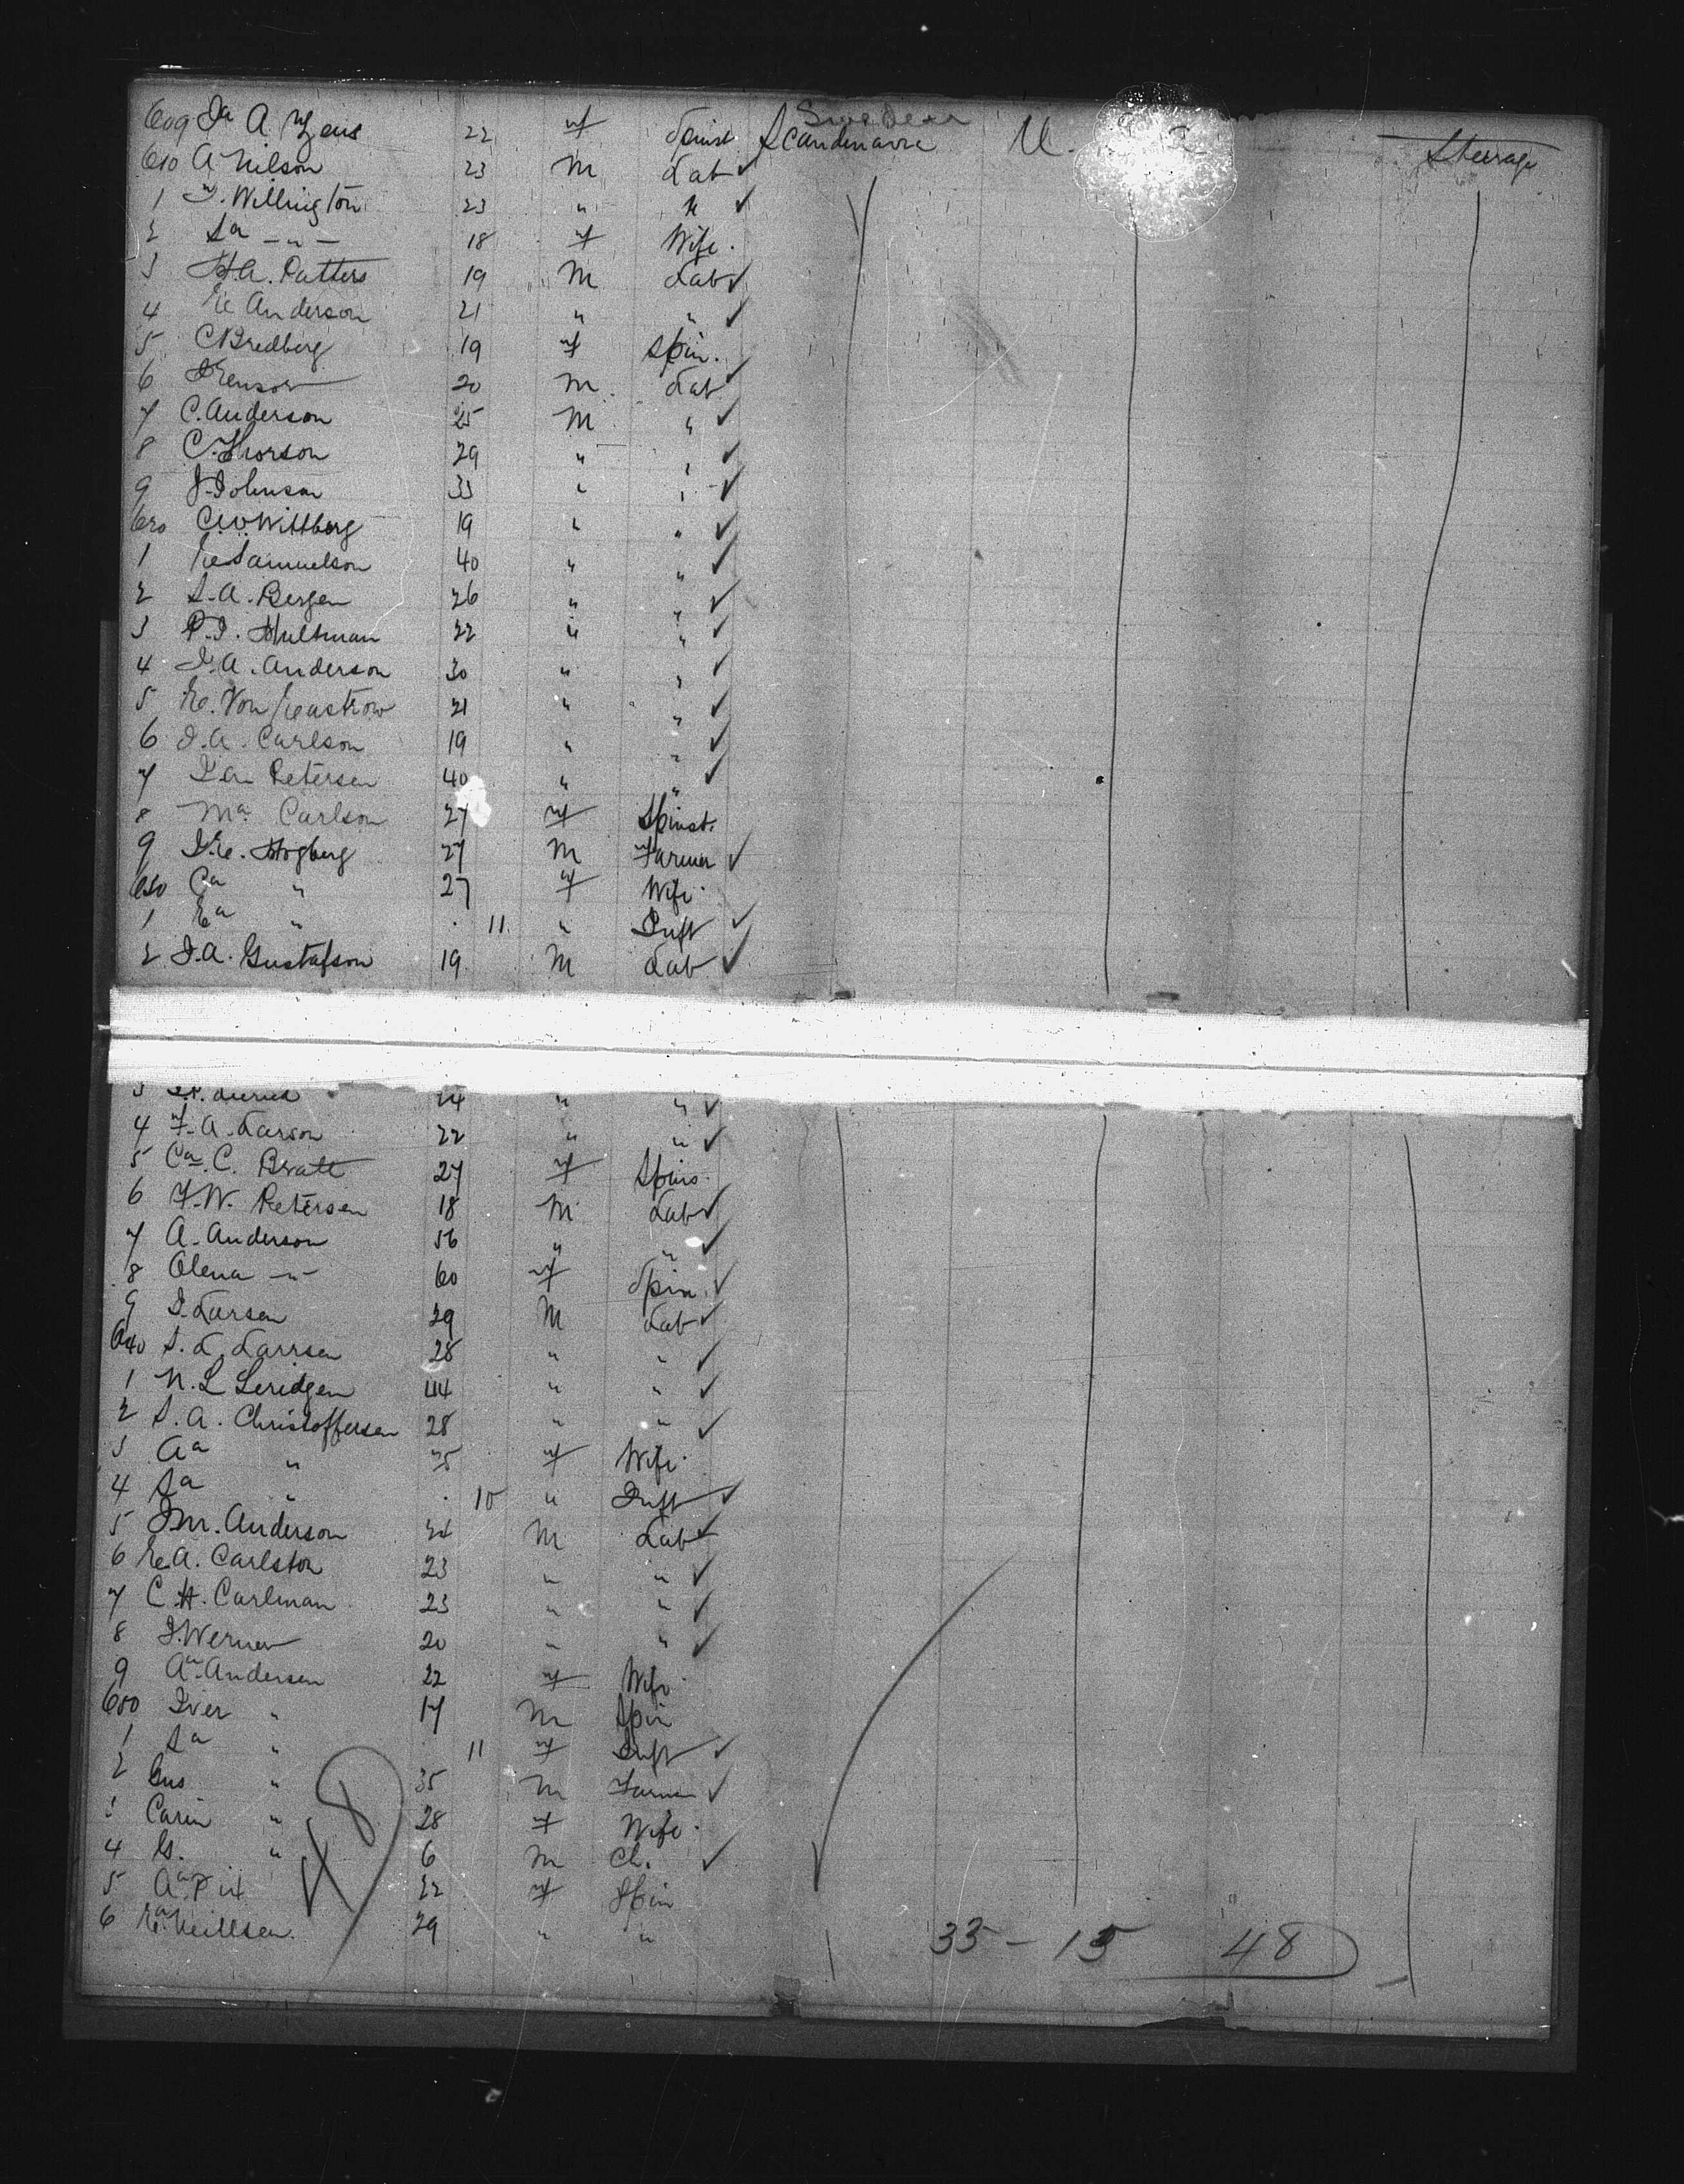 Sweden
609 Ja A. 22 f Spinst Scandinavia U. Steerage
610 A Nilson 23 M Lab ✓
1 J. Willington 23 " " ✓
2 Sa -"- 18 f Wife
3 H.A. Patters 19 M Lab ✓
4 E Anderson 21 " " ✓
5 C Bredberg 19 f Spin.
6 20 M Lab ✓
7 C. Anderson 25 M " ✓
8 C. Thorson 29 " " ✓
9 J. Johnson 33 " " ✓
620 C.W. Wittberg 19 " " ✓
1 E Samuelson 40 " " ✓
2 S. A. Bergen 26 " " ✓
3 P. J. Hultman 22 " " ✓
4 J. A. Anderson 30 " " ✓
5 E. Von 21 " " ✓
6 J. A. Carlson 19 " " ✓
7 Petersen 40 " " ✓
8 Ma Carlson 27 f Spinst.
9 J. E. Hogberg 27 M Farmer ✓
630 Ca " 27 f Wife
1 Ea " 11 " Inft ✓
2 J. A. Gustafson 19 M Lab ✓
3 24 " " ✓
4 F. A. Larson 22 " " ✓
5 Ca. C. Bratt 27 f Spins.
6 F. W. Petersen 18 M Lab ✓
7 A. Anderson 56 " " ✓
8 Olena -"- 60 f Spin. ✓
9 J. Larsen 29 M Lab ✓
640 S. L. Larrsen 28 " " ✓
1 N. L 44 " " ✓
2 S. A. Christoffersen 28 " " ✓
3 Aa " 25 f Wife
4 Sa " 10 " Inft ✓
5 J M. Anderson 24 M Lab ✓
6 E A. Carlston 23 " " ✓
7 C. H. Carlman 23 " " ✓
8 J. Werner 20 " " ✓
9 Aa Andersen 22 f Wife
650 Iver " 17 M Spin
1 Sa " 11 f Inft ✓
2 Gus " 35 M Farmer ✓
3 Carin " 28 f Wife
4 G. " 6 M Ch. ✓
5 Aa 22 f Spin
6 Ea Neillsen. 29 " "
33 - 15 48